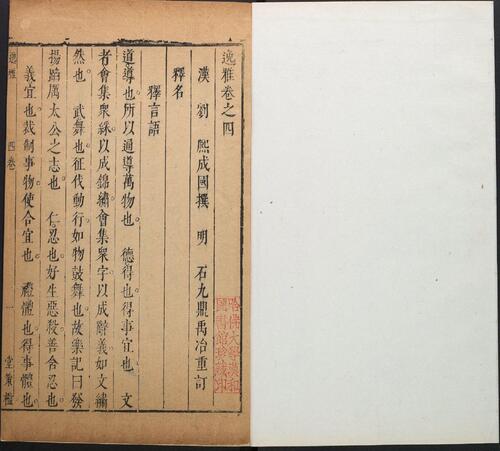 逸雅卷之四
漢 劉 熙成國撰 明 石九鼎禹冶重訂
釋名
釋言語
道導也所以通導萬物也 德得也得事宜也 文
者會集衆綵以成錦繡會集衆字以成辭義如文繡
然也 武舞也征伐動行如物鼓舞也故樂記曰發
揚蹈厲太公之志也 仁忍也好生惡殺善含忍也
義宜也裁制事物使合宜也 禮體也得事體也
逸雅 四卷 一 堂策檻
哈佛大學漢和
圖書館珍藏印